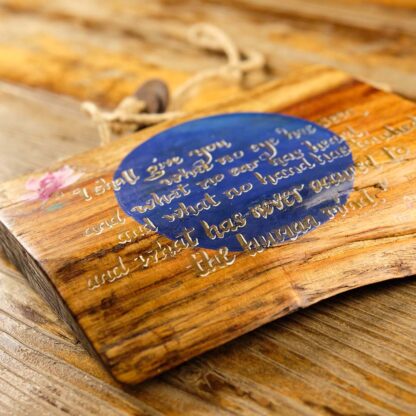 "I shall give you
what no eye has seen,
and what no ear has heard,
and what no hand has touched
and what has never occured to
the human mind."